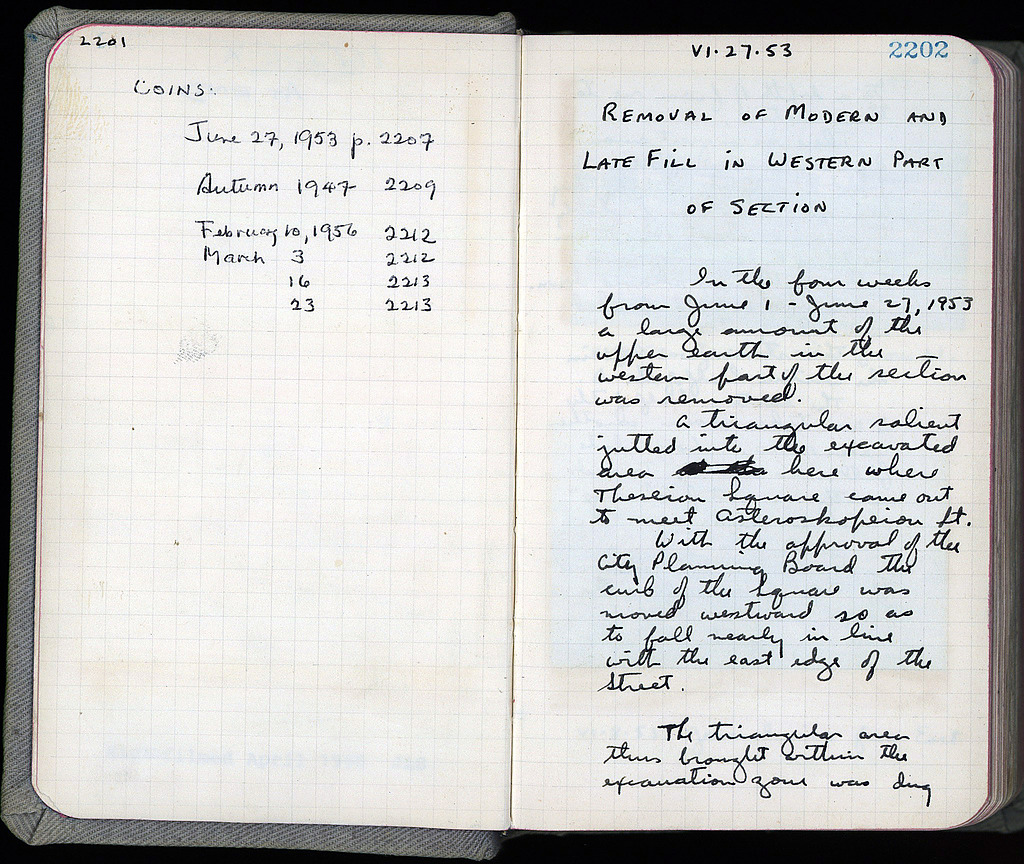 2201
COINS:
June 27, 1953 p. 2207
Autumn 1947 2209
February 10, 1956 2212
March 3 2212
16 2213
23 2213
VI·27·53 2202
REMOVAL OF MODERN AND
LATE FILL IN WESTERN PART
OF SECTION
In the four weeks
from June 1 - June 27, 1953
a large amount of the
upper earth in the
western part of the section
was removed.
A triangular salient
jutted into the excavated
area here where
Theseion Square came out
to meet Asteroskopeion St.
With the approval of the
City Planning Board the
curb of the Square was
moved westward so as
to fall nearly in line
with the east edge of the
Street.
The triangular area
thus brought within the
excavation zone was dug